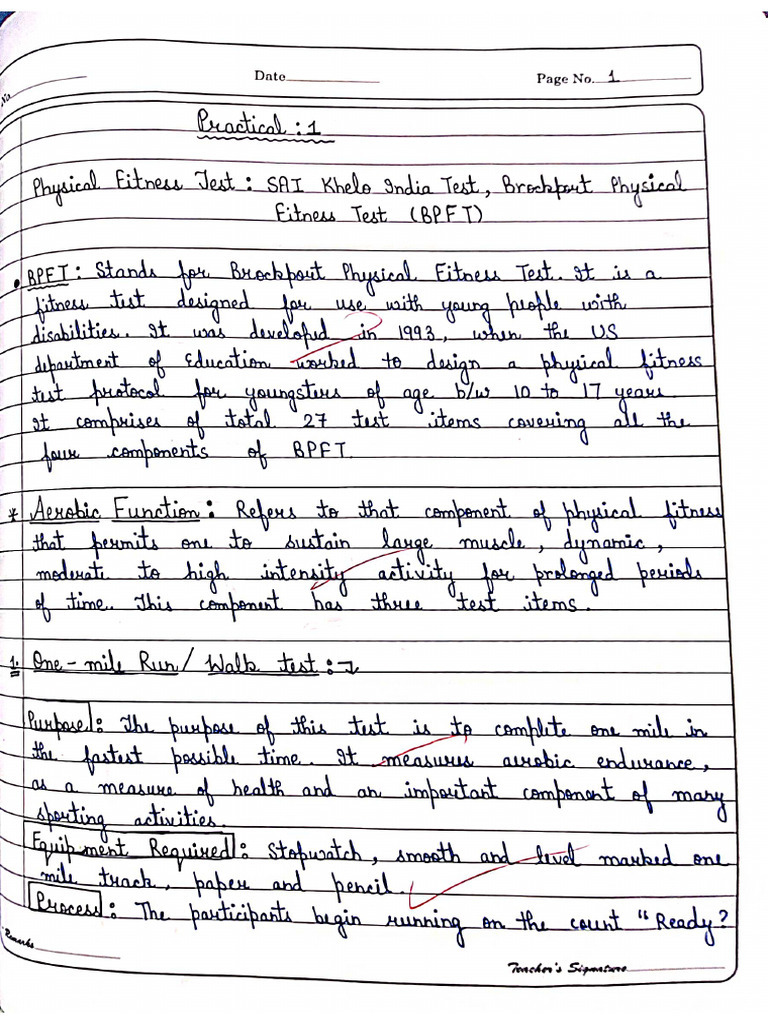 No.
Date
Page No. 1
Practical : 1
Physical Fitness Test : SAI Khelo India Test, Brockport Physical
Fitness Test (BPFT)
• BPFT : Stands for Brockport Physical Fitness Test. It is a
fitness test designed for use with young people with
disabilities. It was developed in 1993, when the US
department of Education worked to design a physical fitness
test protocol for youngsters of age b/w 10 to 17 years.
It comprises of total 27 test items covering all the
four components of BPFT.
* Aerobic Function : Refers to that component of physical fitness
that permits one to sustain large muscle, dynamic,
moderate to high intensity activity for prolonged periods
of time. This component has three test items.
1. One-mile Run/ Walk test :-
Purpose : The purpose of this test is to complete one mile in
the fastest possible time. It measures aerobic endurance,
as a measure of health and an important component of many
sporting activities.
Equipment Required : Stopwatch, smooth and level marked one
mile track, paper and pencil.
Process : The participants begin running on the count "Ready?
Remarks
Teacher's Signature